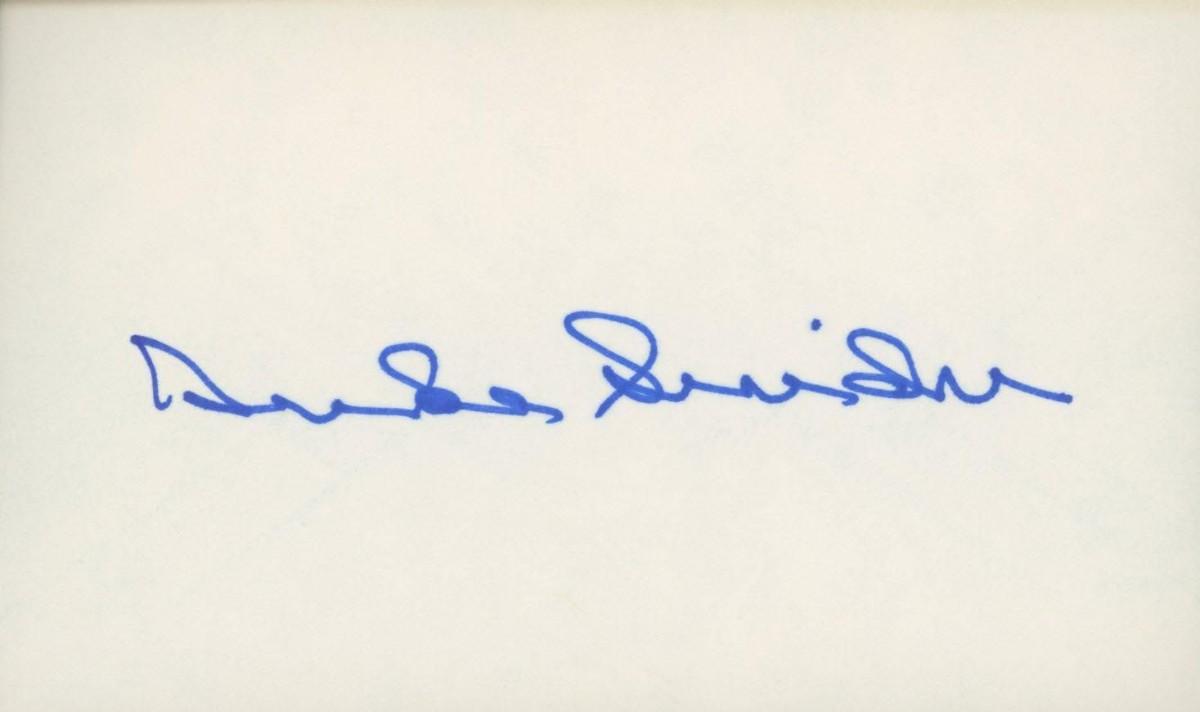 Duke Snider